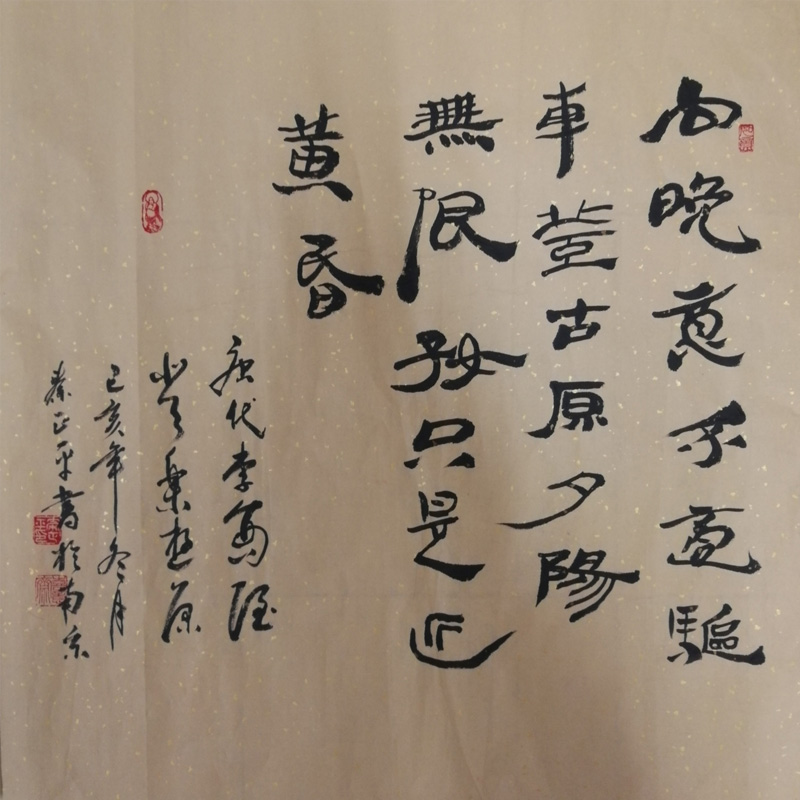 向晚意不適驅
車登古原夕陽
無限好只是近
黄昏
唐代李商隱
登樂遊原
己亥年冬月
秦正平書於南京